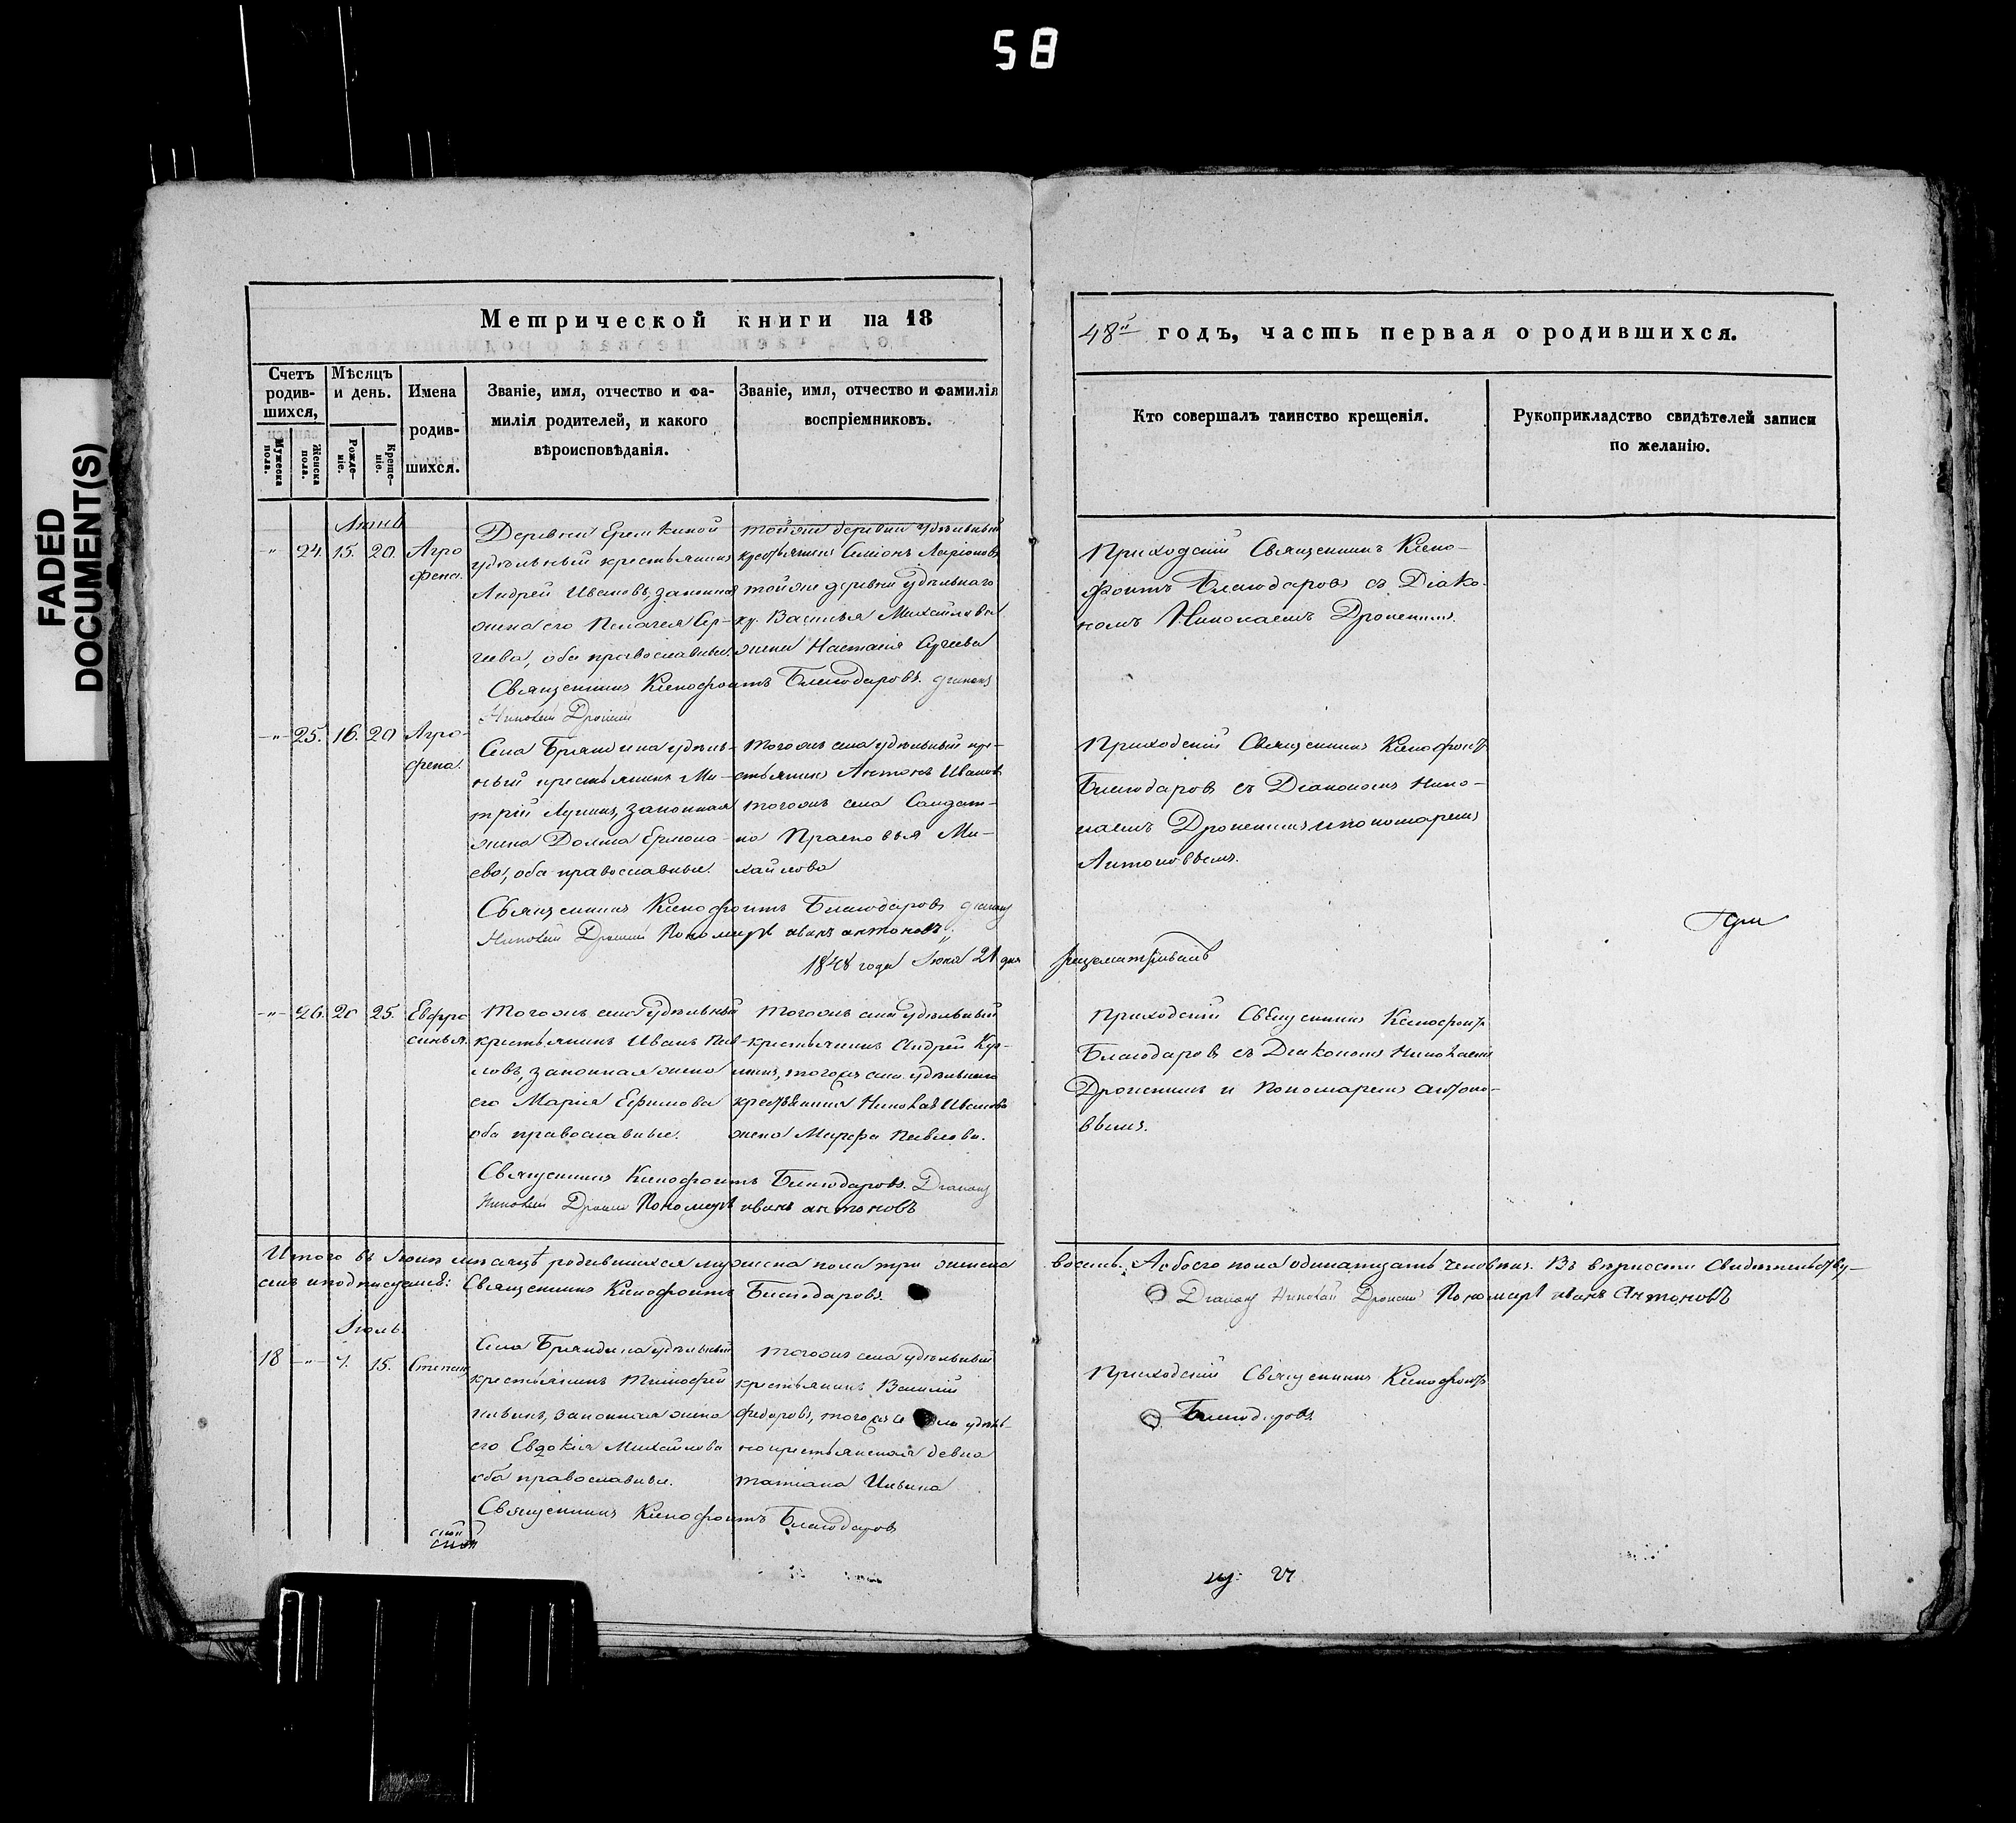 58
FADED
DOCUMENT(S)
Метрической книги на 18
48й годъ, часть первая о родившихся.
Счетъ родив-шихся,
Мѣсяцъ и день.
Имена родив-шихся.
Званіе, имя, отчество и фа-
милія родителей, и какого
вѣроисповѣданія.
Званіе, имя, отчество и фамилія
воспріемниковъ.
Мужеска пола.
Женска пола.
Рожде-ніе.
Креще-ніе.
Кто совершалъ таинство крещенія.
Рукоприкладство свидѣтелей записи
по желанію.
-"- 24. 15. 20. Агро
фена.
Деревни
удѣльный крестьянинъ
Андрей Ивановъ, законная
жена его Пелагея Сер-
гѣева, оба православные.
тойже деревни удѣльный
крестьянинъ Симіонъ Ларіоновъ
тойже деревни удѣльнаго
кр. Василья Михайлова
жена Настасія Сергѣева
Священникъ Ксенофонтъ Благодаровъ. діаконъ
Николай
Приходскій Священникъ Ксено-
фонтъ Благодаровъ съ Діако-
номъ Николаемъ
-"- 25. 16. 20 Агро-
фена.
Села удѣль-
ный крестьянинъ Ми-
трій законная
жена Домна
ева, оба православные.
тогожъ села удѣльный кре-
стьянинъ Антонъ Ивановъ
тогожъ села Солдат-
ка Прасковья Ми-
хайлова
Священникъ Ксенофонтъ Благодаровъ діаконъ
Николай Пономарь иванъ антоновъ
1848 года Іюня 21 дня
Приходскій Священникъ Ксенофонтъ
Благодаровъ съ Діакономъ Нико-
лаемъ и пономаремъ
Антоновымъ.
-"- 26. 20 25. Евфро
синья.
Тогожъ села удѣльный
крестьянинъ Иванъ Пав-
ловъ, законная жена
его Марія Ефимова
оба православные.
Тогожъ села удѣльный
крестьянинъ Андрей
тогожъ села удѣльнаго
крестьянина Николая Иванова
жена Марфа Павлова.
Священникъ Ксенофонтъ Благодаровъ. Діаконъ
Николай Пономарь иванъ антоновъ
Приходскій Священникъ Ксенофонтъ
Благодаровъ съ Діакономъ Николаемъ
и Пономаремъ антоно-
вымъ.
Итого въ Іюнѣ мѣсяцѣ родившихся мужеска пола три женска
восемь. А обоего пола одинатцать человѣкъ. Въ вѣрности Свидѣтельству-
емъ и подписуемъ: Священникъ Ксенофонтъ Благодаровъ
Діаконъ Николай Пономарь иванъ Антоновъ
Іюль.
18 -"- 15. Степанъ
Села удѣльный
крестьянинъ Тимофей
законная жена
его Евдокія Михайлова
оба православные.
тогожъ села удѣльный
крестьянинъ Василій
Федоровъ, тогожъ села удѣль-
но крестьянская девка
татіана Ильина
Священникъ Ксенофонтъ Благодаровъ
Приходскій Священникъ Ксенофонтъ
Благодаровъ.